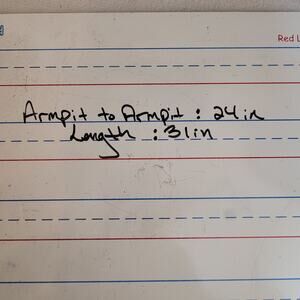 Red L
Armpit to Armpit : 24in
Length : 31in